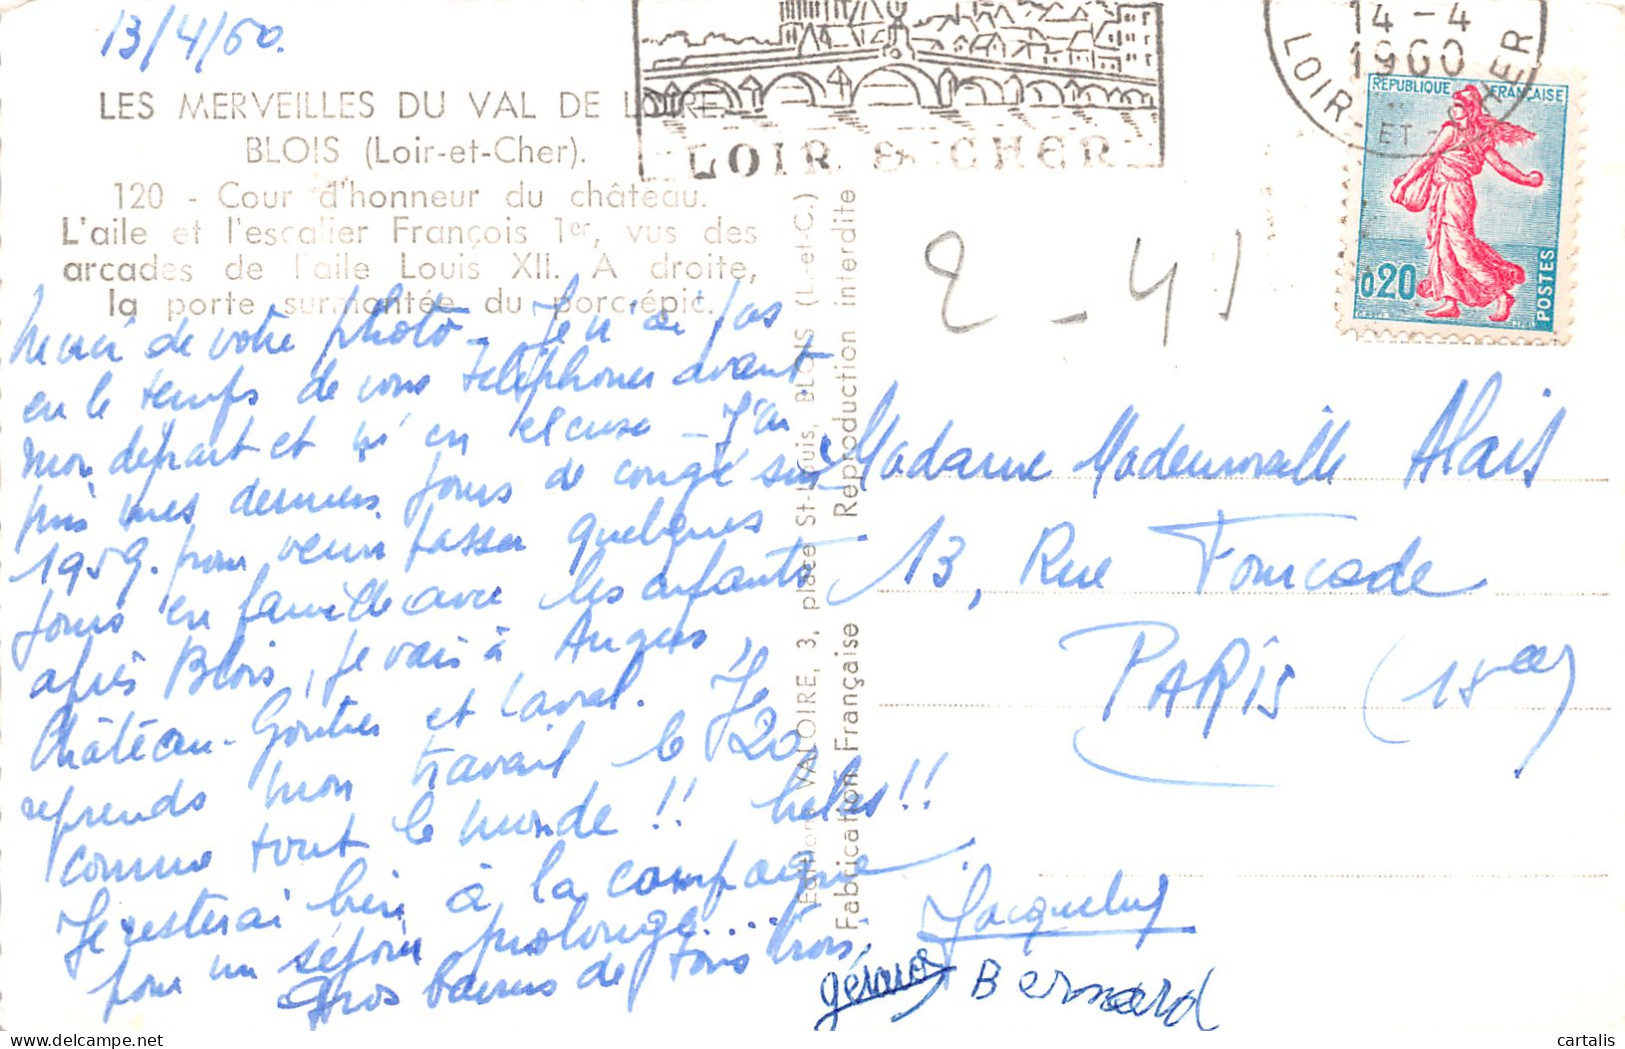 13/4/60.
LES MERVEILLES DU VAL DE LOIRE
BLOIS (Loir-et-Cher).
120 - Cour d'honneur du château.
L'aile et l'escalier François 1er, vus des
arcades de l'aile Louis XII. A droite,
la porte surmontée du porc-épic.
Merci de votre photo - Je n'ai pas
eu le temps de vous téléphoner avant
mon départ et m'en excuse - J'ai
pris mes derniers jours de congé sur
1959. pour venir passer quelques
jours en famille avec les enfants
après Blois, je vais à Angers,
Château-Gontier et Laval. Je
reprends mon travail le 20,
comme tout le monde !! hélas !!
Je resterai bien à la campagne
pour un séjour prolongé....
Gros baisers de tous trois,
Jacqueline
Gérard
Bernard
Editions VALOIRE, 3, place St-Louis, BLOIS (L.-et-C.)
Fabrication Française Reproduction interdite
LOIR & CHER
14-4
1960
LOIR-ET-CHER
REPUBLIQUE FRANÇAISE
0,20
POSTES
2-41
Madame Mademoiselle Alais
13, Rue Fourcade
PARIS (15
cartalis